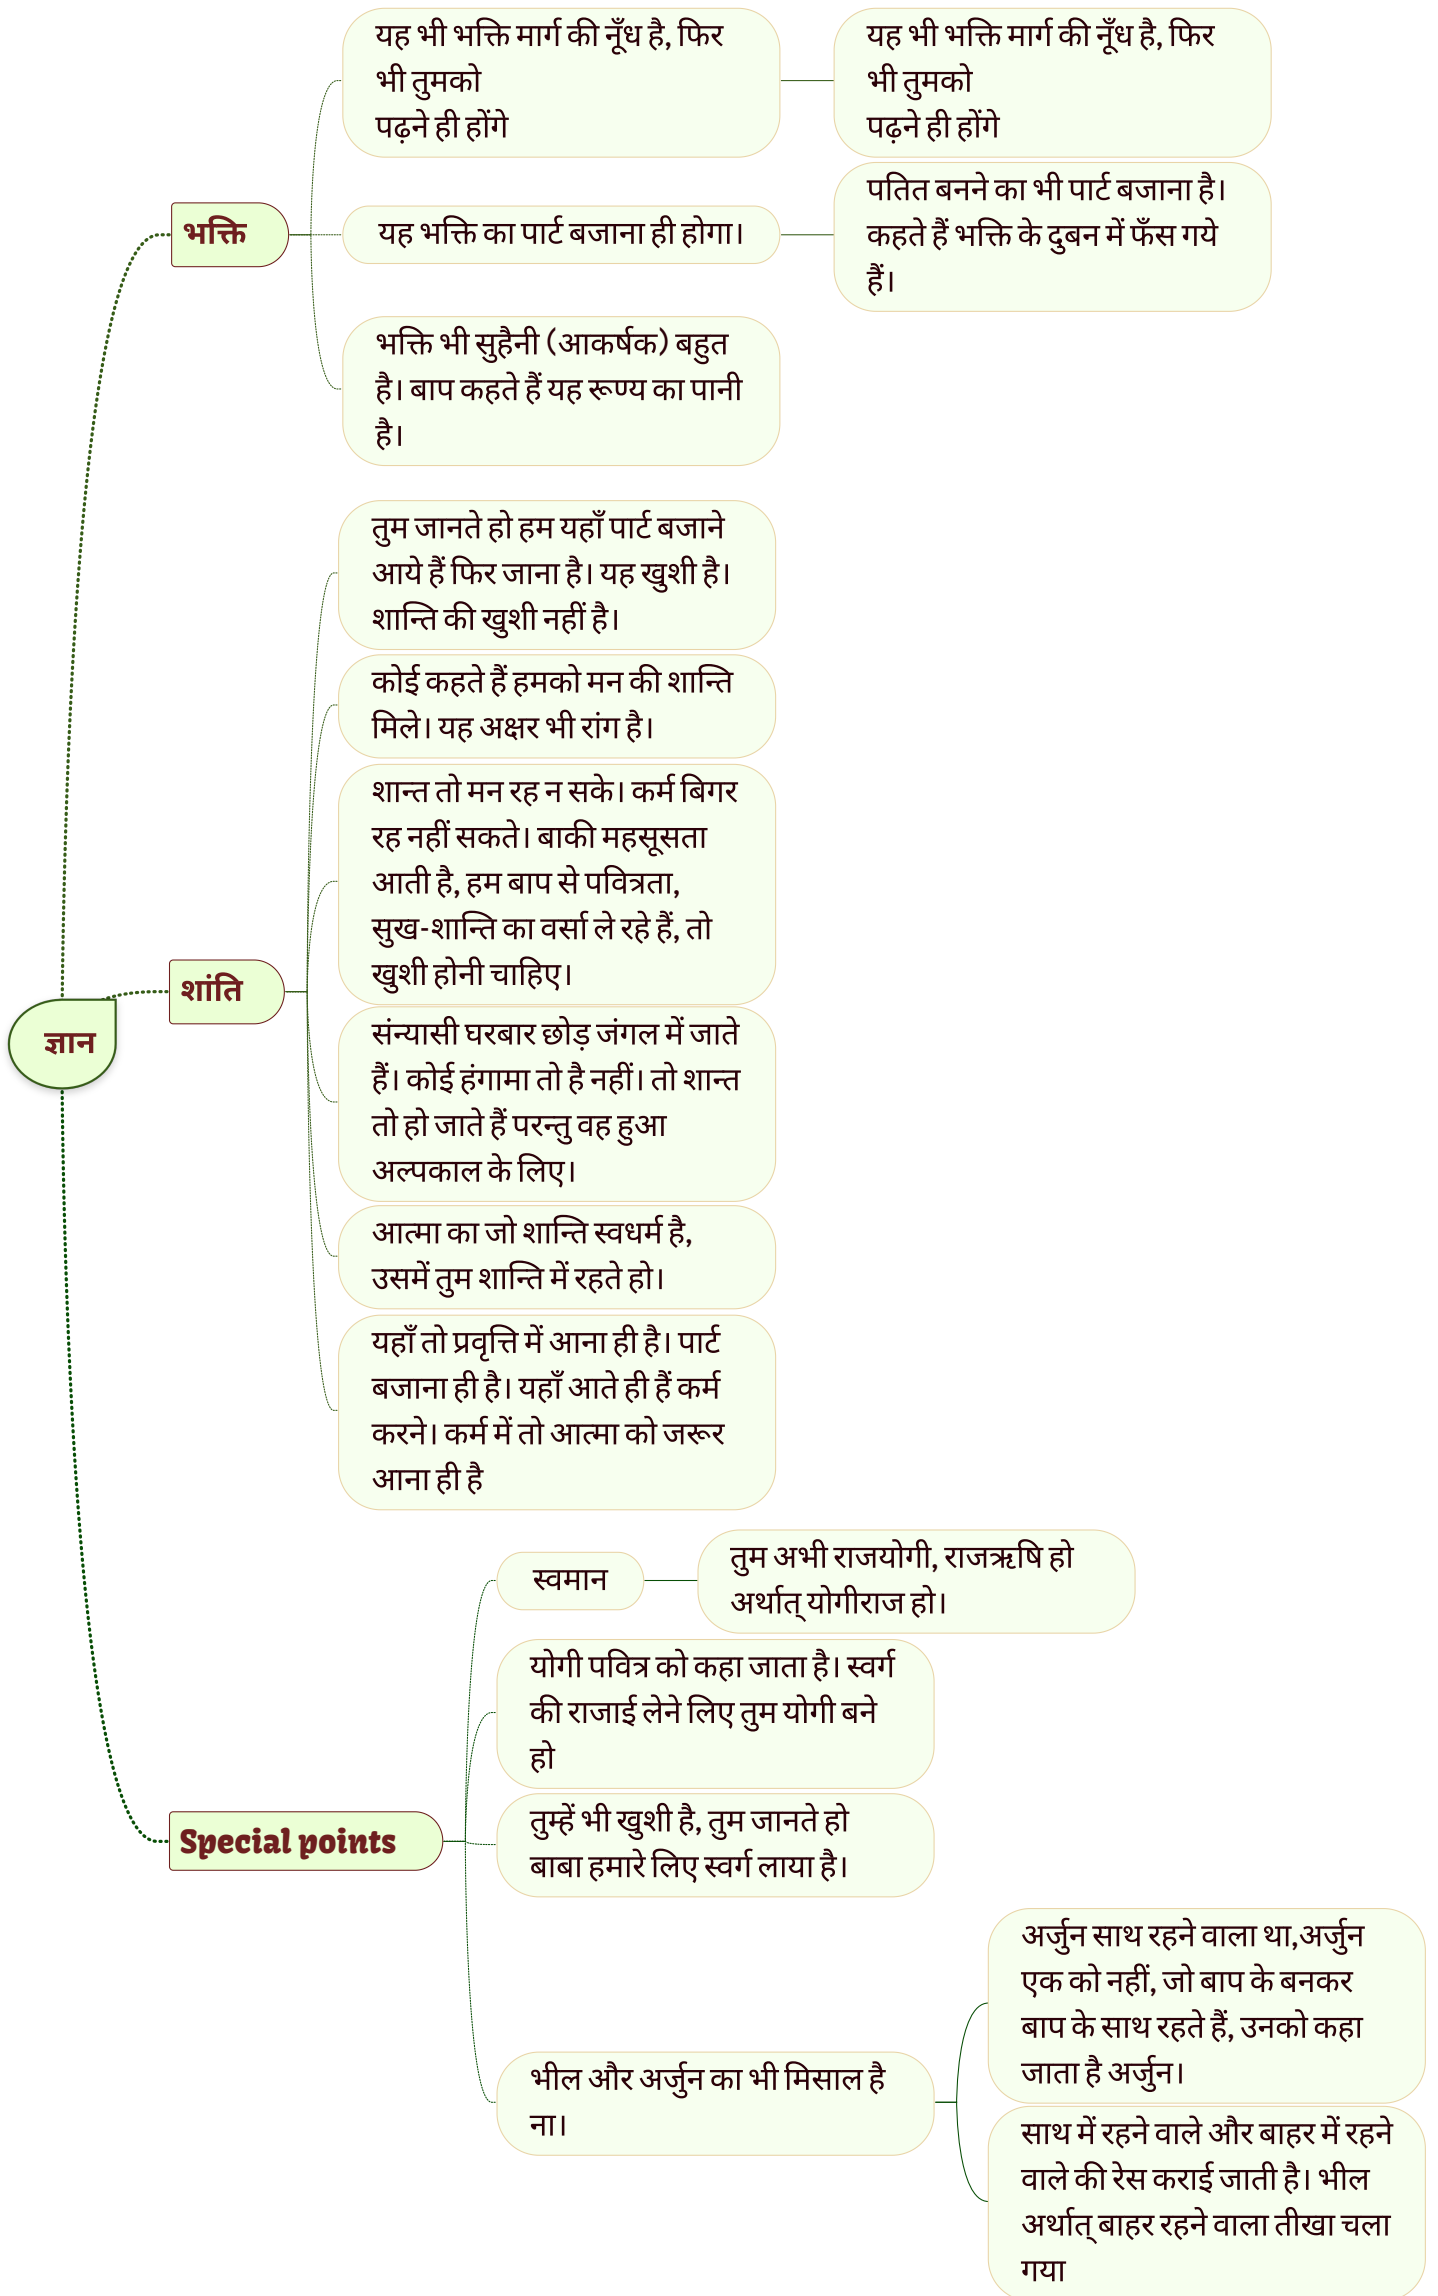 यह भी भक्ति मार्ग की नूँध है, फिर
भी तुमको
पढ़ने ही होंगे
यह भी भक्ति मार्ग की नूँध है, फिर
भी तुमको
पढ़ने ही होंगे
भक्ति
यह भक्ति का पार्ट बजाना ही होगा।
पतित बनने का भी पार्ट बजाना है।
कहते हैं भक्ति के दुबन में फँस गये
हैं।
भक्ति भी सुहैनी (आकर्षक) बहुत
है। बाप कहते हैं यह रूण्य का पानी
है।
ज्ञान
शांति
तुम जानते हो हम यहाँ पार्ट बजाने
आये हैं फिर जाना है। यह खुशी है।
शान्ति की खुशी नहीं है।
कोई कहते हैं हमको मन की शान्ति
मिले। यह अक्षर भी रांग है।
शान्त तो मन रह न सके। कर्म बिगर
रह नहीं सकते। बाकी महसूसता
आती है, हम बाप से पवित्रता,
सुख-शान्ति का वर्सा ले रहे हैं, तो
खुशी होनी चाहिए।
संन्यासी घरबार छोड़ जंगल में जाते
हैं। कोई हंगामा तो है नहीं। तो शान्त
तो हो जाते हैं परन्तु वह हुआ
अल्पकाल के लिए।
आत्मा का जो शान्ति स्वधर्म है,
उसमें तुम शान्ति में रहते हो।
यहाँ तो प्रवृत्ति में आना ही है। पार्ट
बजाना ही है। यहाँ आते ही हैं कर्म
करने। कर्म में तो आत्मा को जरूर
आना ही है
Special points
स्वमान
तुम अभी राजयोगी, राजऋषि हो
अर्थात् योगीराज हो।
योगी पवित्र को कहा जाता है। स्वर्ग
की राजाई लेने लिए तुम योगी बने
हो
तुम्हें भी खुशी है, तुम जानते हो
बाबा हमारे लिए स्वर्ग लाया है।
भील और अर्जुन का भी मिसाल है
ना।
अर्जुन साथ रहने वाला था,अर्जुन
एक को नहीं, जो बाप के बनकर
बाप के साथ रहते हैं, उनको कहा
जाता है अर्जुन।
साथ में रहने वाले और बाहर में रहने
वाले की रेस कराई जाती है। भील
अर्थात् बाहर रहने वाला तीखा चला
गया